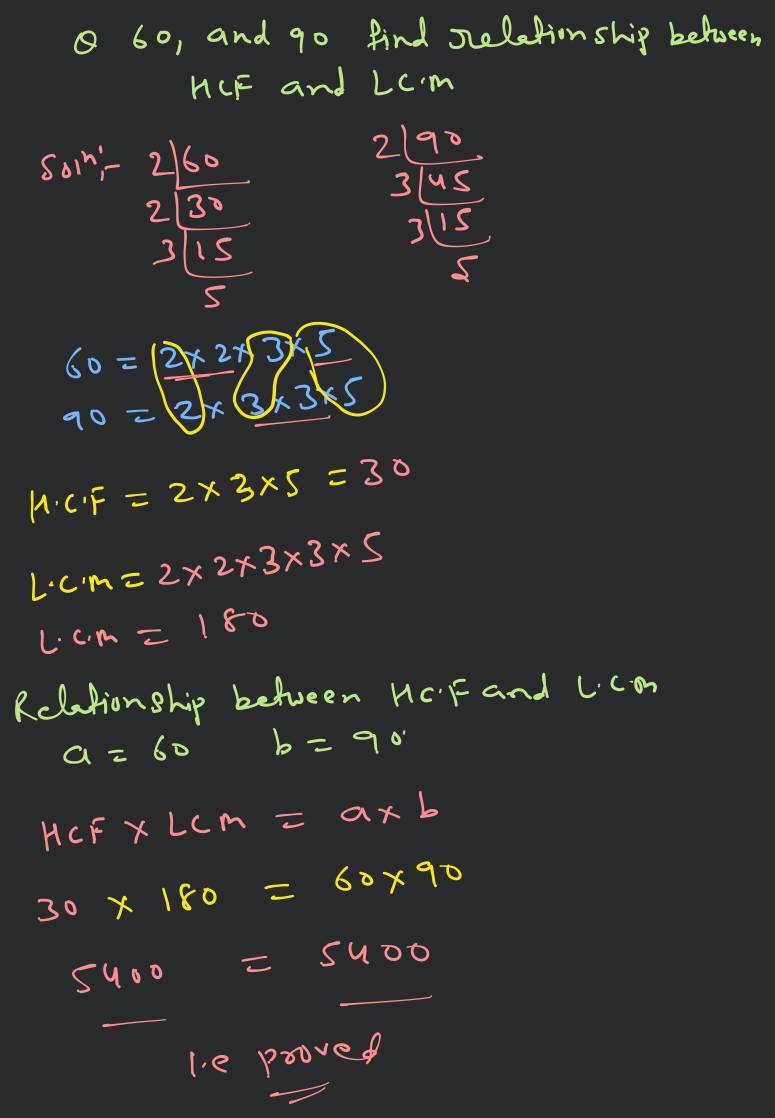 Q 60, and 90 find relationship between
HCF and LC.M
Soln:-
2|60
2|30
3|15
5
2|90
3|45
3|15
5
60 = 2×2×3×5
90 = 2×3×3×5
H.C.F = 2×3×5 = 30
L.C.M = 2×2×3×3×5
L.C.M = 180
Relationship between HC.F and L.C.M
a = 60 b = 90
HCF × LCM = a×b
30 × 180 = 60×90
5400 = 5400
I.e proved